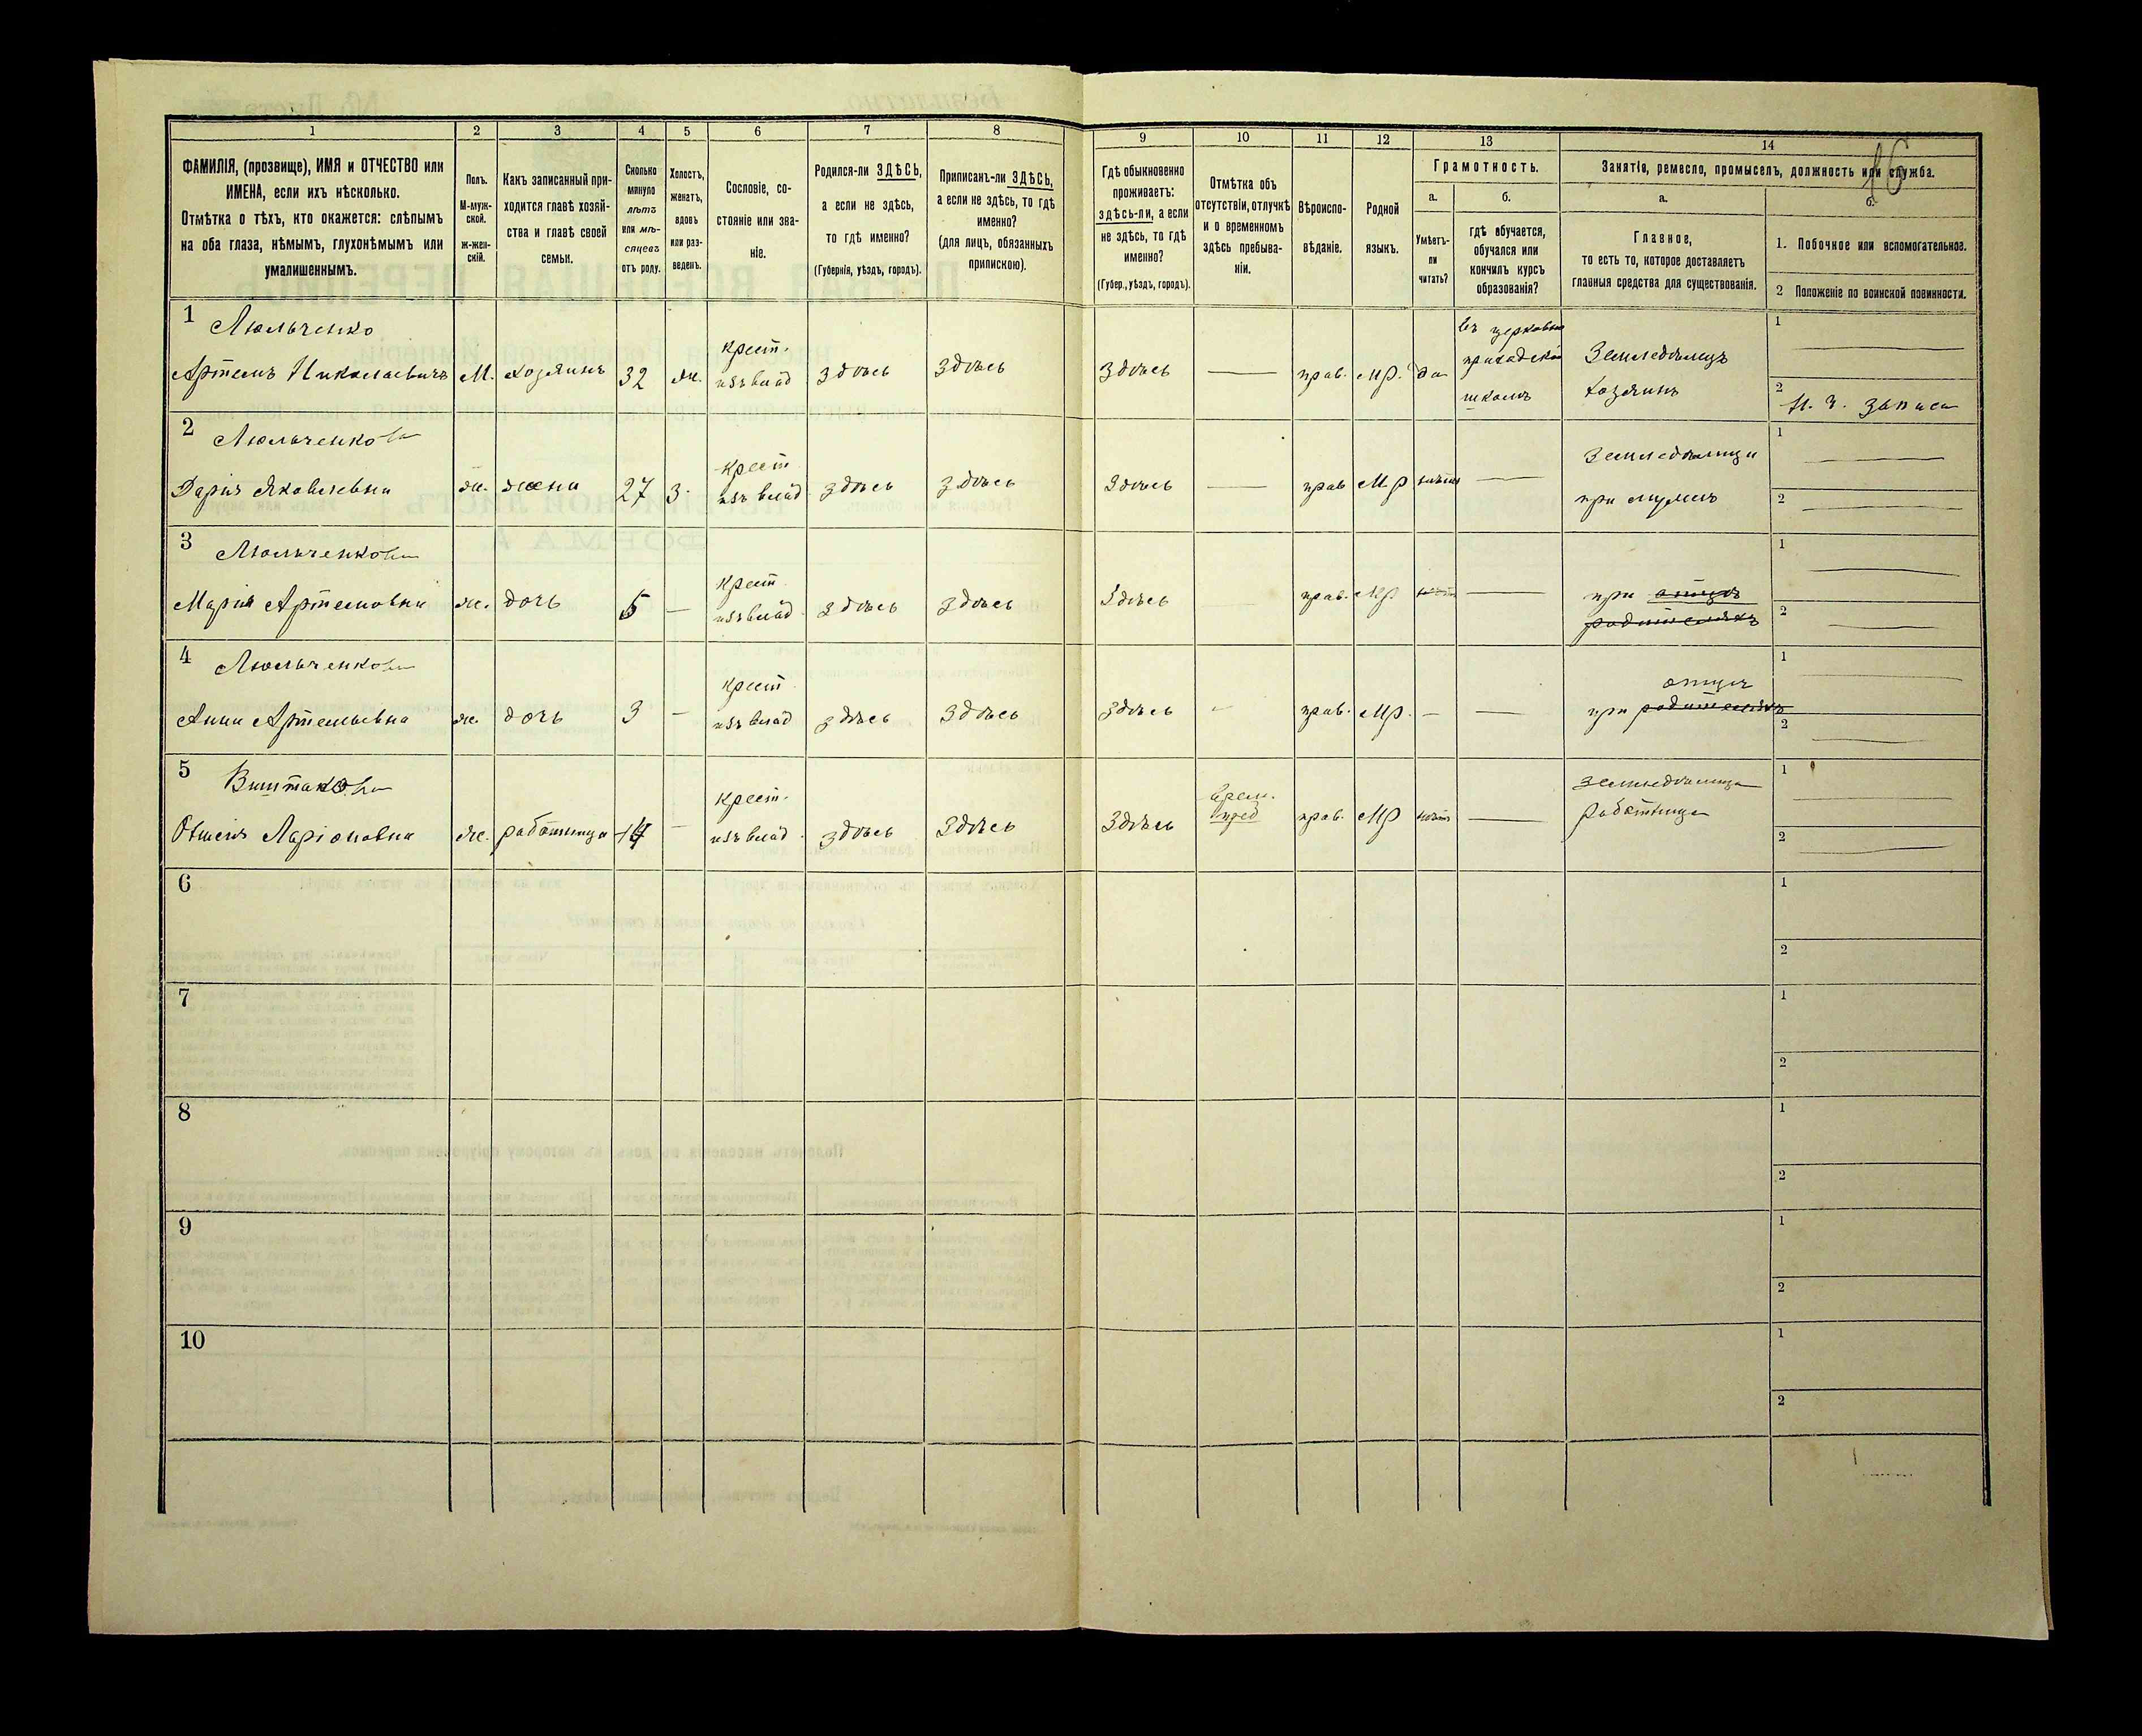 1
2
3
4
5
6
7
8
9
10
11
12
13
14
16
ФАМИЛІЯ, (прозвище), ИМЯ и ОТЧЕСТВО или
ИМЕНА, если ихъ нѣсколько.
Отмѣтка о тѣхъ, кто окажется: слѣпымъ
на оба глаза, нѣмымъ, глухонѣмымъ или
умалишеннымъ.
Полъ.
М-муж-
ской.
ж-жен-
скій.
Какъ записанный при-
ходится главѣ хозяй-
ства и главѣ своей
семьи.
Сколько
минуло
лѣтъ
или мѣ-
сяцевъ
отъ роду.
Холостъ,
женатъ,
вдовъ
или раз-
веденъ.
Сословіе, со-
стояніе или зва-
ніе.
Родился-ли ЗДѢСЬ,
а если не здѣсь,
то гдѣ именно?
(Губернія, уѣздъ, городъ).
Приписанъ-ли ЗДѢСЬ,
а если не здѣсь, то гдѣ
именно?
(для лицъ, обязанныхъ
припискою).
Гдѣ обыкновенно
проживаетъ:
здѣсь-ли, а если
не здѣсь, то гдѣ
именно?
(Губер., уѣздъ, городъ).
Отмѣтка объ
отсутствіи, отлучкѣ
и о временномъ
здѣсь пребыва-
ніи.
Вѣроиспо-
вѣданіе.
Родной
языкъ.
Грамотность.
а.
Умѣетъ-
ли
читать?
б.
гдѣ обучается,
обучался или
кончилъ курсъ
образованія?
Занятіе, ремесло, промыселъ, должность или служба.
а.
Главное,
то есть то, которое доставляетъ
главныя средства для существованія.
б.
1. Побочное или вспомогательное.
2 Положеніе по воинской повинности.
1 Люльченко
Артемъ Николаевичъ М. хозяинъ 32 ж. крест. изъ влад здѣсь здѣсь здѣсь — прав. Мр. да
въ церковно
приходской
школѣ
Земледѣлецъ
хозяинъ
1 —
2
2 Люльченкова
Дарія Яковлевна ж. жена 27 з. крест изъ влад здѣсь здѣсь здѣсь — прав Мр нѣтъ —
земледѣлица
при мужѣ
1 —
2 —
3 Люльченкова
Марія Артемовна ж. дочь 5 — крест изъ влад. здѣсь здѣсь здѣсь прав. Мр нѣтъ —
при отцѣ
родителяхъ
1 —
2 —
4 Люльченкова
Анна Артемьевна ж. дочь 3 — крест изъ влад здѣсь здѣсь здѣсь — прав. Мр. — —
отцѣ
при родителяхъ
1 —
2 —
5
Ларіоновна ж. работница 14 — крест. изъ влад. здѣсь здѣсь здѣсь
врем.
прав. Мр нѣтъ —
земледѣлица
работница
1 —
2 —
6
1
2
7
1
2
8
1
2
9
1
2
10
1
2